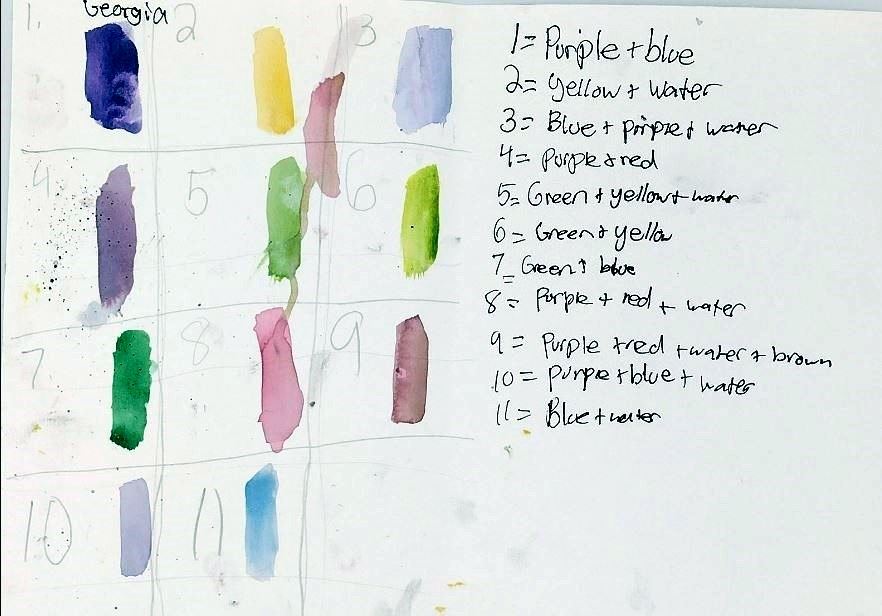 Georgia
1. 2 3
4 5 6
7 8 9
10 11
1= Purple + blue
2= Yellow + water
3= Blue + pirple + water
4= purple + red
5= Green + yellow + water
6= Green + yellow
7= Green + blue
8= Purple + red + water
9= Purple + red + water + brown
10= purple + blue + water
11= Blue + water